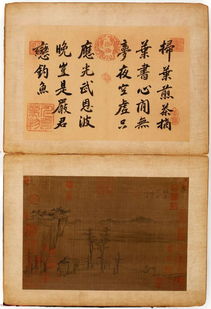 掃葉煎茶摘
葉書心閒無
夢夜窗虛只
應光武恩波
晚豈是嚴君
戀釣魚